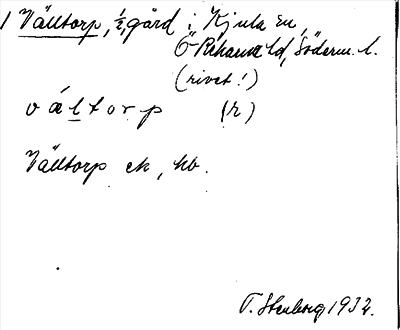 1 Välltorp, ½ gård i Kjula sn,
Ö-Rekarne hd, Söderm. l.
(rivet!)
váltorp (r)
Välltorp ek, hb.
T. Stenborg 1932.